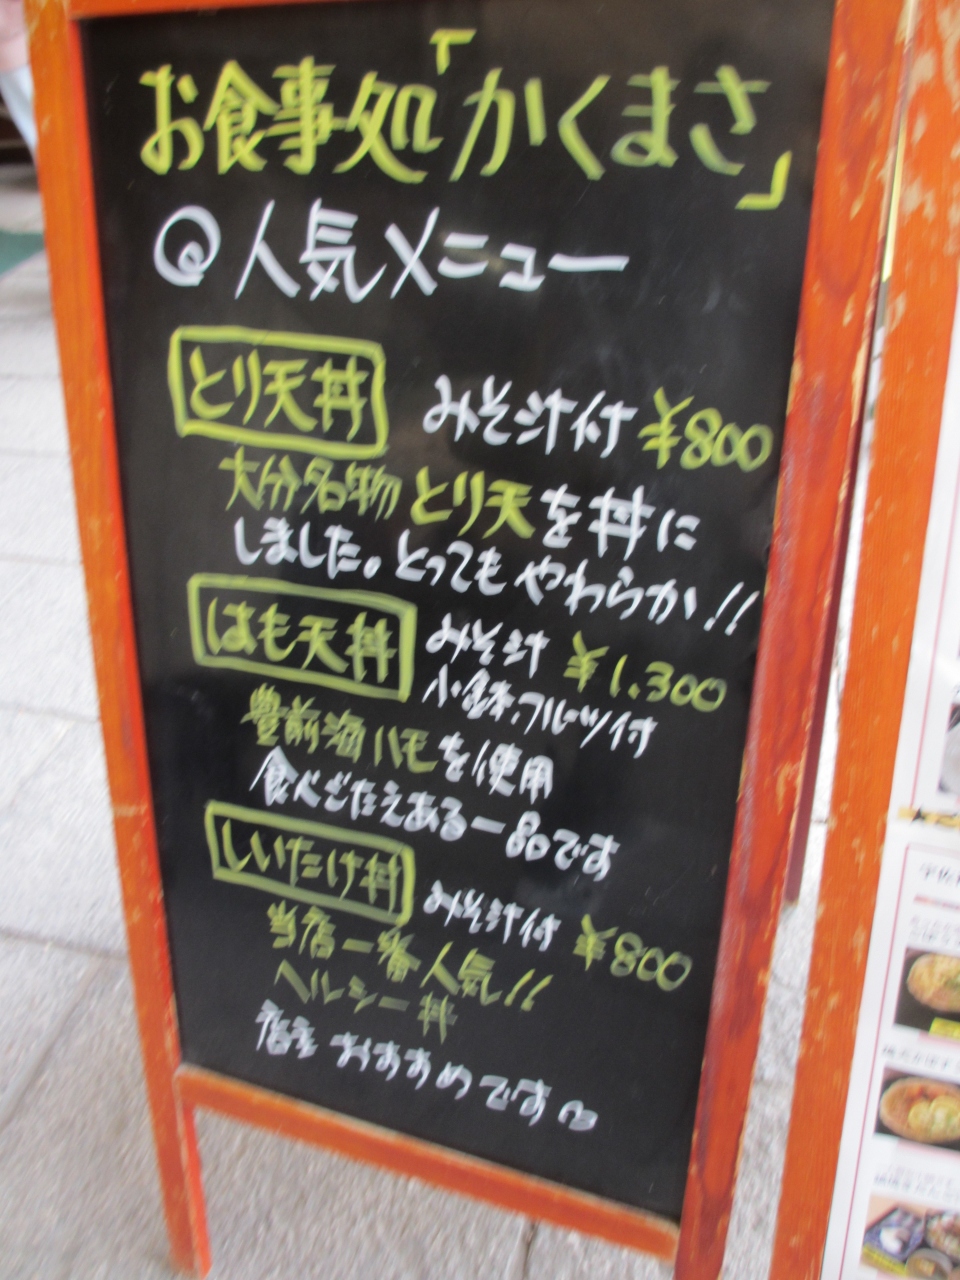 お食事処「かくまさ」
◎人気メニュー
とり天丼 みそ汁付 ¥800
大分名物とり天を丼に
しました。とってもやわらか!!
はも天丼 みそ汁 ¥1,300
小鉢、フルーツ付
豊前海ハモを使用
食べごたえある一品です
しいたけ丼 みそ汁付 ¥800
当店一番人気!!
ヘルシー丼
店主おすすめです